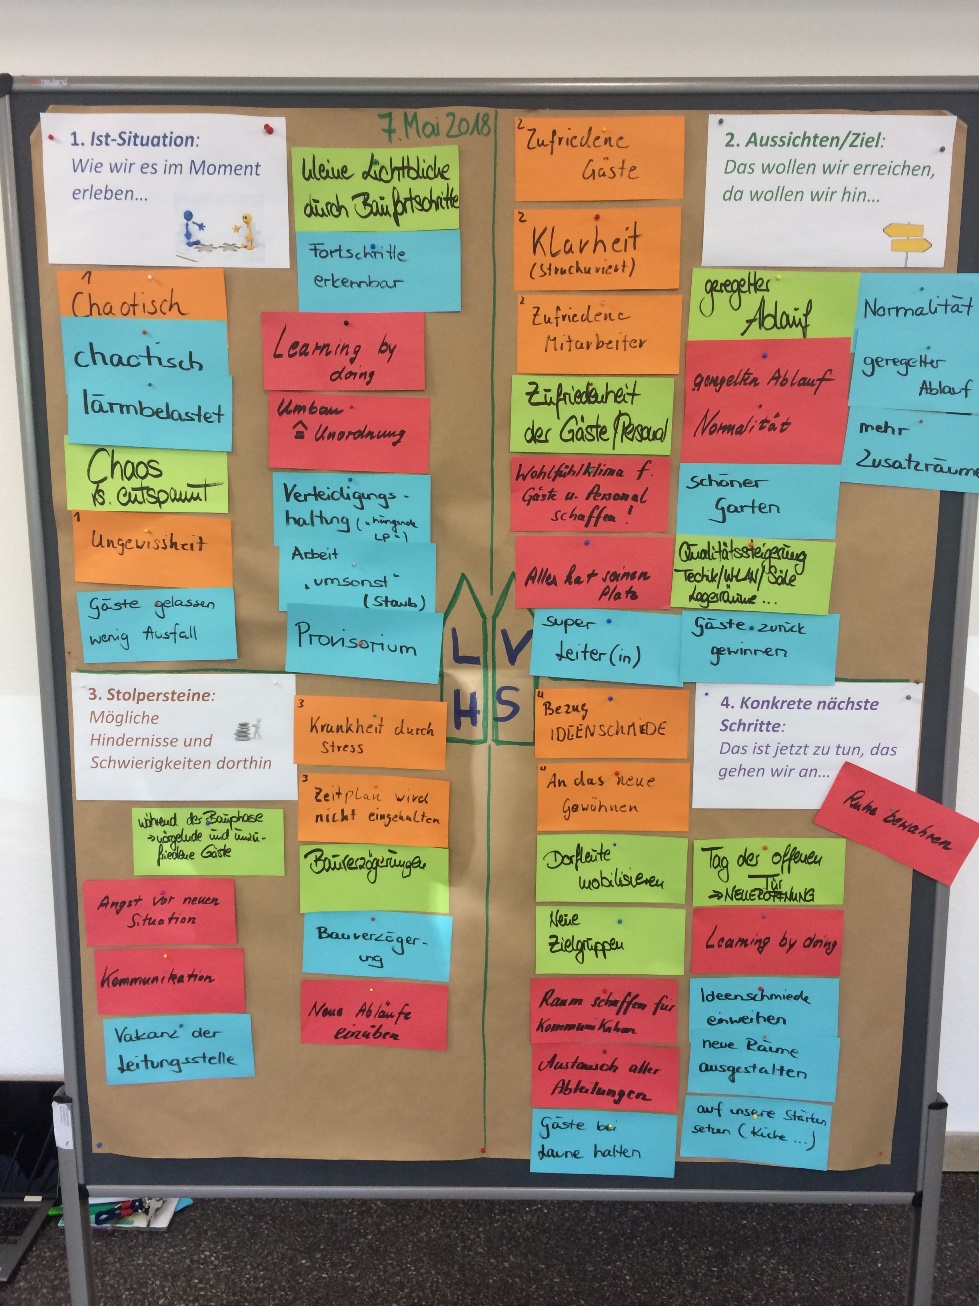 7. Mai 2018
1. Ist-Situation:
Wie wir es im Moment
erleben...
kleine Lichtblicke
durch Baufortschritte
Fortschritte
erkennbar
1
Chaotisch
chaotisch
lärmbelastet
Chaos
vs. entspannt
1
Ungewissheit
Gäste gelassen
wenig Ausfall
Learning by
doing
Umbau
≙ Unordnung
Verteidigungs-
haltung
Arbeit
"umsonst"
(Staub)
Provisorium
2
Zufriedene
Gäste
2
Klarheit
(Strukturiert)
2
Zufriedene
Mitarbeiter
Zufriedenheit
der Gäste/Personal
Wohlfühlklima f.
Gäste u. Personal
schaffen!
Alles hat seinen
Platz
super
Leiter(in)
2. Aussichten/Ziel:
Das wollen wir erreichen,
da wollen wir hin...
geregelter
Ablauf
geregelten Ablauf
Normalität
schöner
Garten
Qualitätssteigerung
Technik/WLAN/Säle
Lagerräume...
Gäste zurück
gewinnen
Normalität
geregelter
Ablauf
mehr
Zusatzräume
L V
H S
3. Stolpersteine:
Mögliche
Hindernisse und
Schwierigkeiten dorthin
während der Bauphase
→ nörgelnde und unzu-
friedene Gäste
Angst vor neuen
Situation
Kommunikation
Vakanz der
Leitungsstelle
3
Krankheit durch
Stress
3
Zeitplan wird
nicht eingehalten
Bauverzögerungen
Bauverzöger-
ung
Neue Abläufe
einüben
4
Bezug
IDEENSCHMIEDE
4
An das neue
Gewöhnen
Dorfleute
mobilisieren
Neue
Zielgruppen
Raum schaffen für
Kommunikation
Austausch aller
Abteilungen
Gäste bei
Laune halten
4. Konkrete nächste
Schritte:
Das ist jetzt zu tun, das
gehen wir an...
Ruhe bewahren
Tag der offenen
Tür
→ NEUERÖFFNUNG
Learning by doing
Ideenschmiede
einweihen
neue Räume
ausgestalten
auf unsere Stärken
setzen (Küche ...)